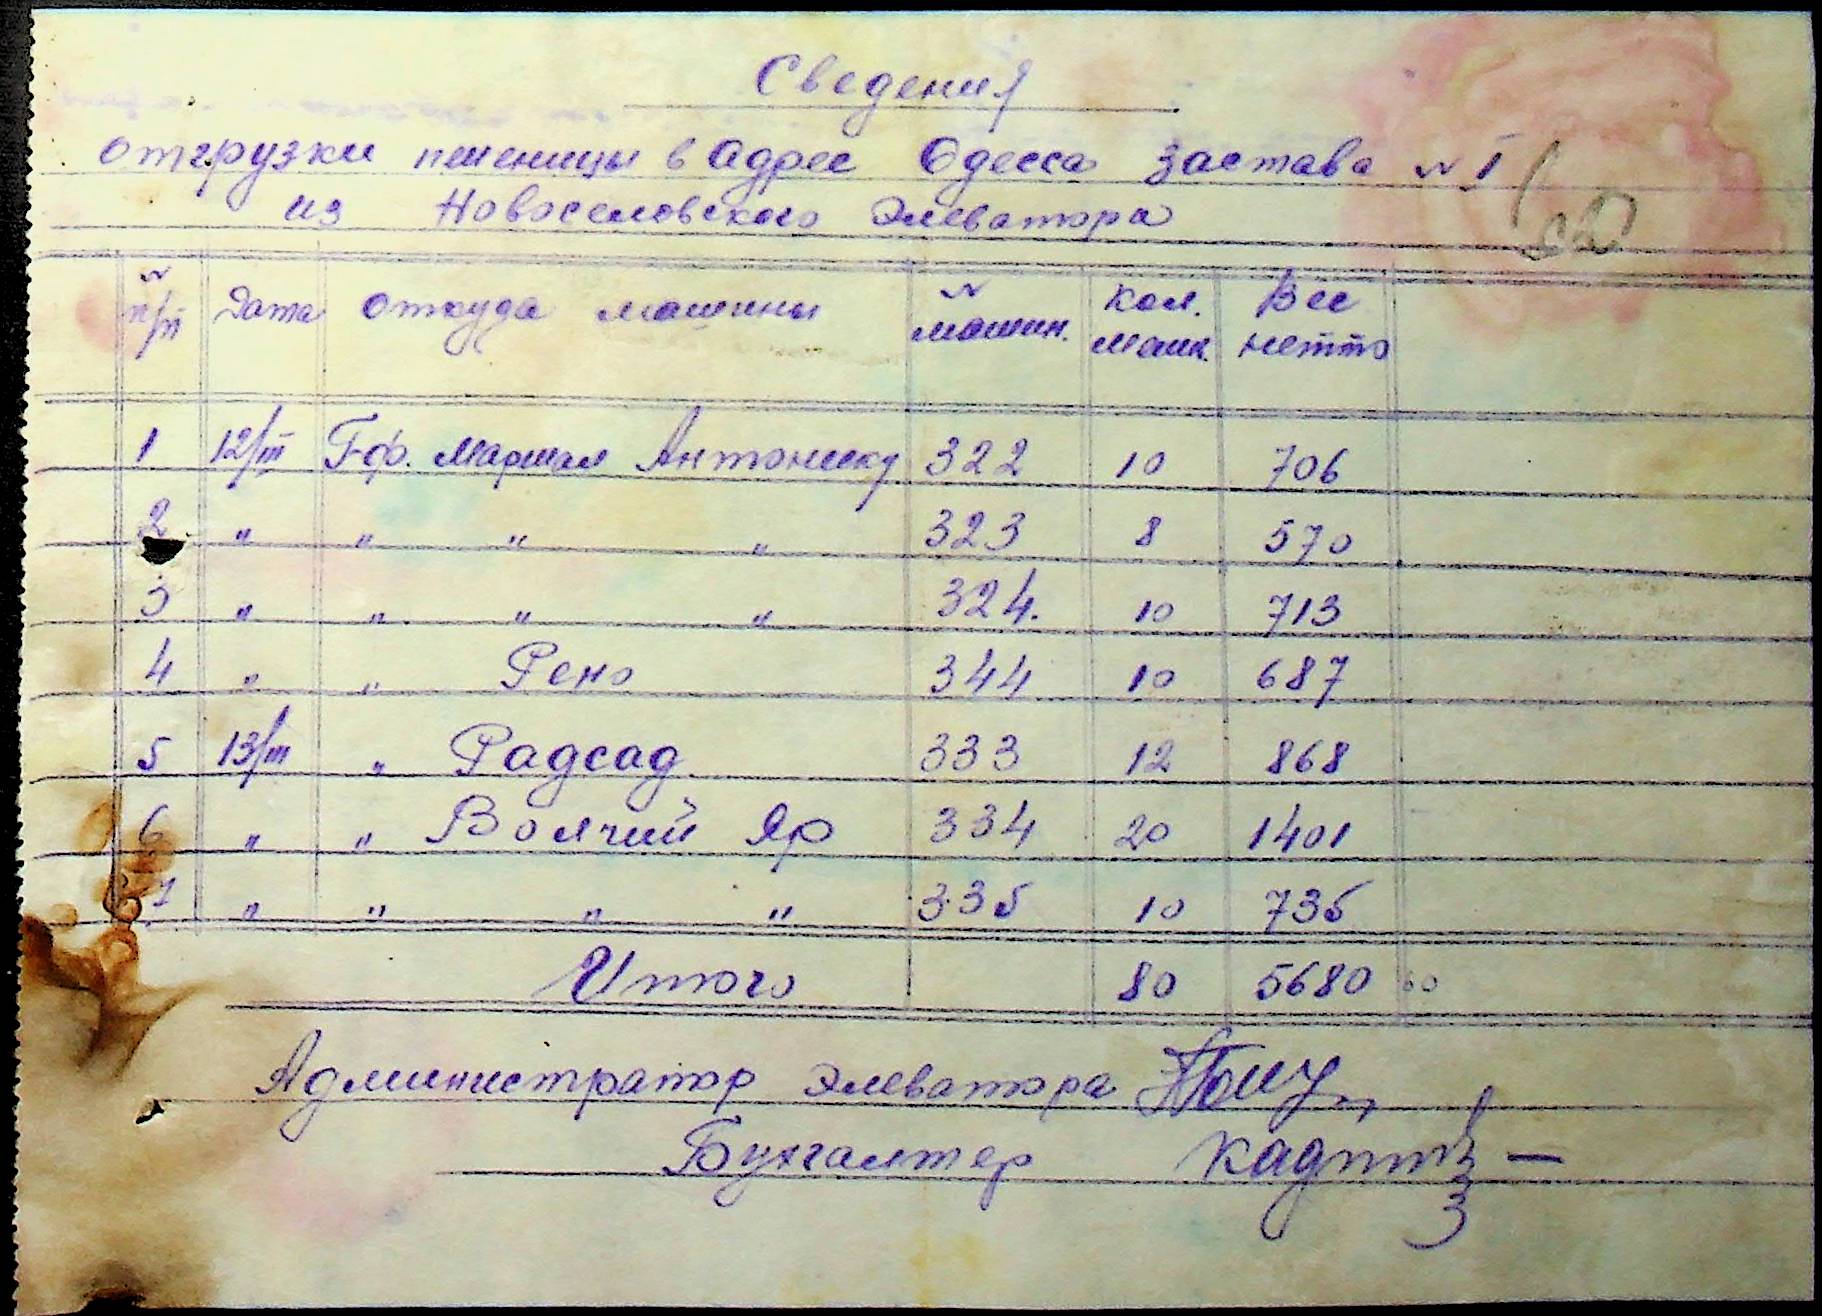 Сведения
отгрузки пшеницы в адрес Одесса Застава № I
из Новоселовского Элеватора
№ п/п Дата откуда машины № машин. Кол. мешк. Вес нетто
1 12/III Г-ф. Маршал Антонеску 322 10 706
2 " " " " 323 8 570
3 " " " " 324. 10 713
4 " " Рено 344 10 687
5 13/III " Радсад 333 12 868
6 " " Волчий Яр 334 20 1401
7 " " " " 335 10 735
Итого 80 5680
Администратор элеватора
Бухгалтер